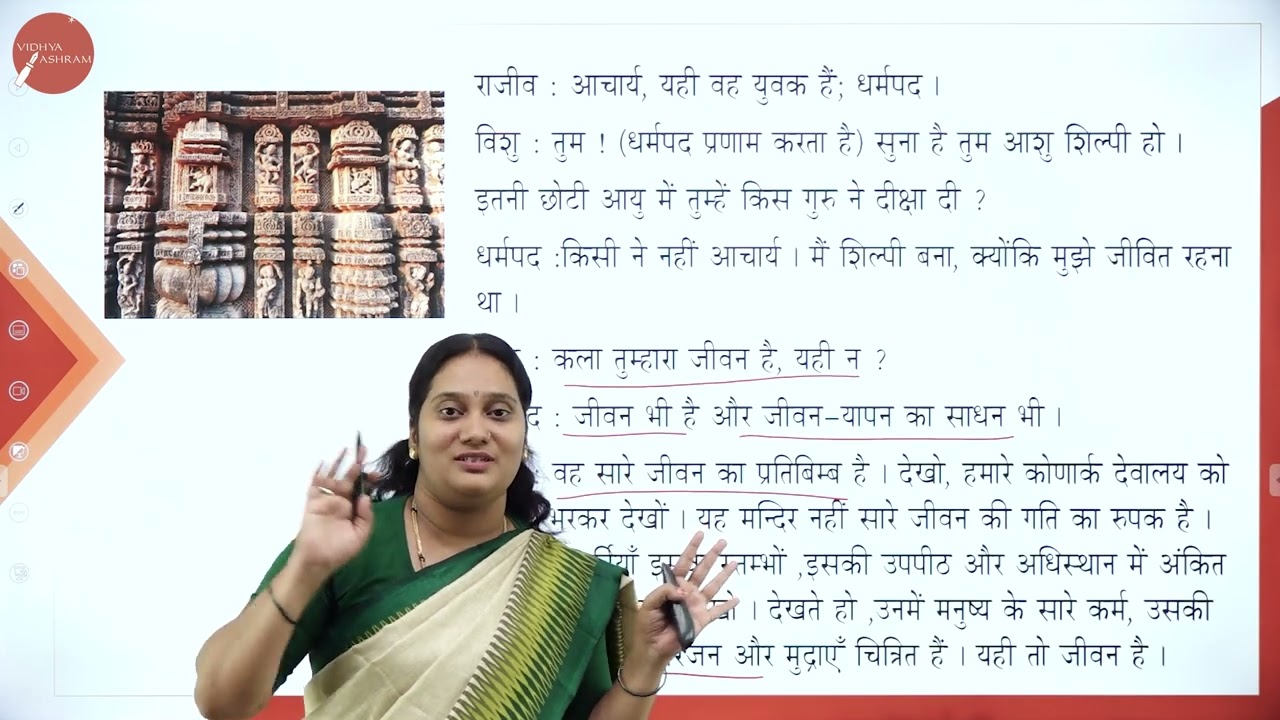 VIDHYA
ASHRAM
राजीव : आचार्य, यही वह युवक हैं; धर्मपद ।
विशु : तुम ! (धर्मपद प्रणाम करता है) सुना है तुम आशु शिल्पी हो ।
इतनी छोटी आयु में तुम्हें किस गुरु ने दीक्षा दी ?
धर्मपद :किसी ने नहीं आचार्य । मैं शिल्पी बना, क्योंकि मुझे जीवित रहना
था ।
: कला तुम्हारा जीवन है, यही न ?
: जीवन भी है और जीवन-यापन का साधन भी ।
वह सारे जीवन का प्रतिबिम्ब है । देखो, हमारे कोणार्क देवालय को
भरकर देखों । यह मन्दिर नहीं सारे जीवन की गति का रुपक है ।
,इसकी उपपीठ और अधिस्थान में अंकित
। देखते हो ,उनमें मनुष्य के सारे कर्म, उसकी
और मुद्राएँ चित्रित हैं । यही तो जीवन है ।